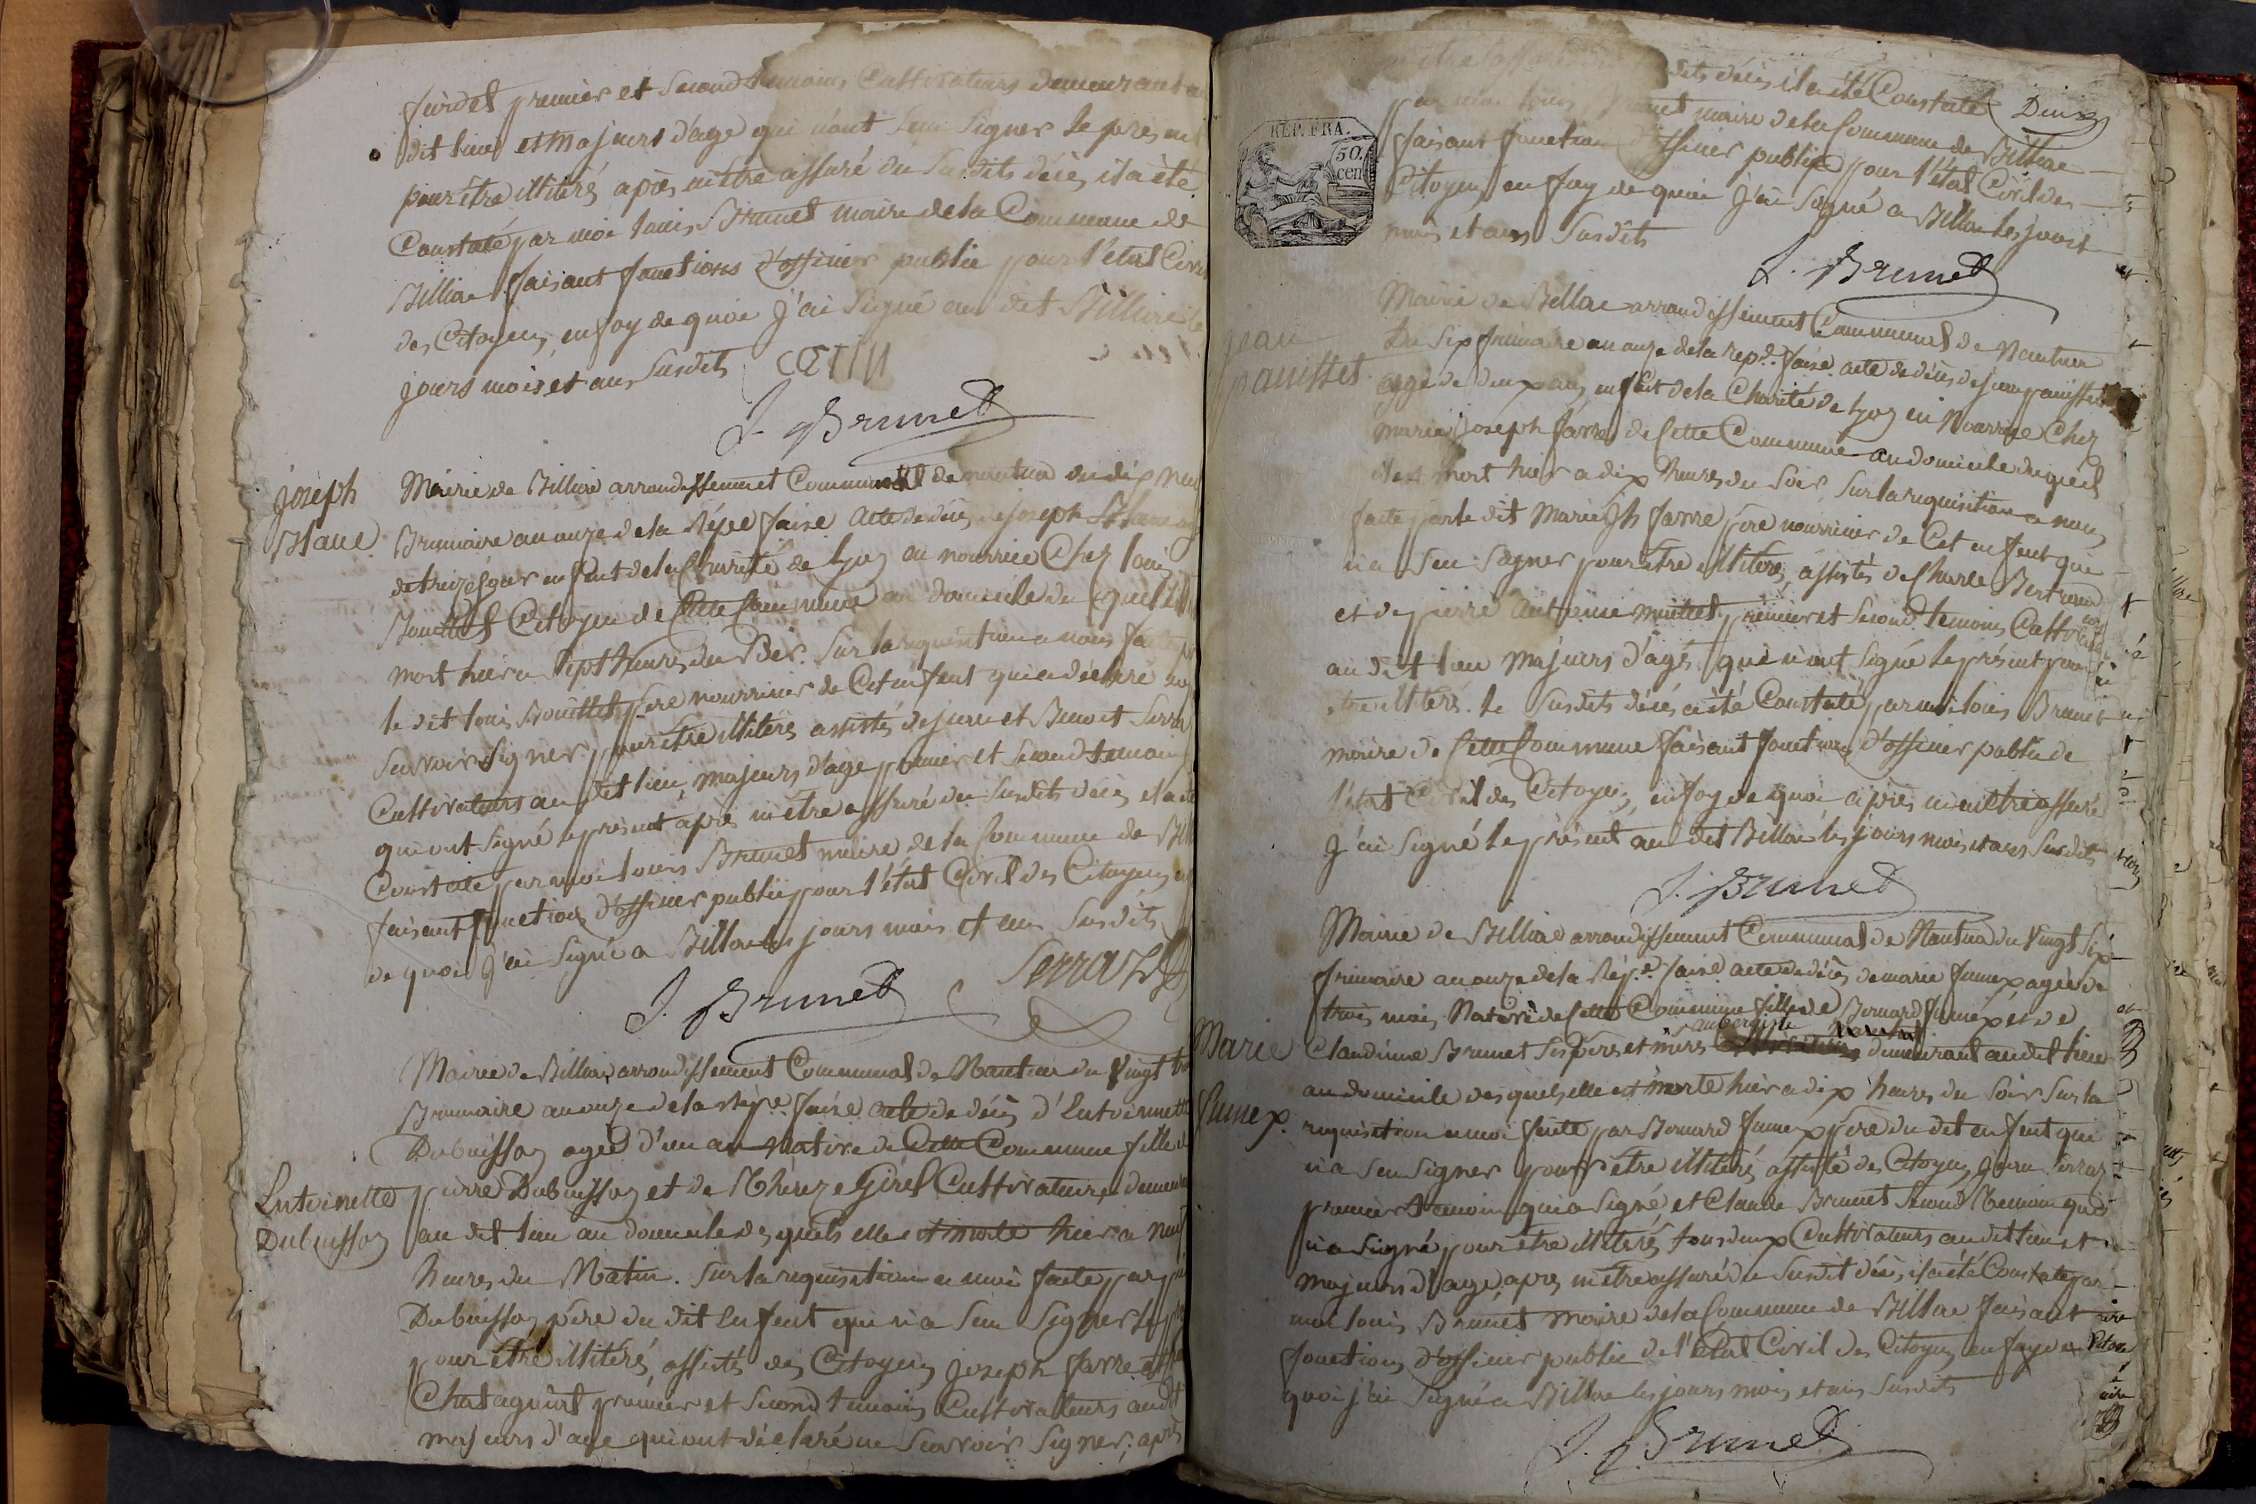 premier et second temoins Cultivateurs demeurant au
dit lieu et majeurs d'age qui n'ont seu signer le present
pour être illiterés après m'être assuré du susdits décès il a été
Constaté par moi louis Brunet maire de la Commune de
Billiac faisant fonctions d'officier public pour l'état Civil
des Citoyens, en foy de quoi j'ai signé au dit Billiac les
jours mois et ans susdits
J. Brunet
joseph
Blanc
Mairie de Billiac arrondissement Communal de nantua du dix neuf
Brumaire an onze de la Répee faise acte de décès de joseph Blanc agé
de treize jours enfant de la Charité de lyon en nourrice Chez louis
Citoyen de Cette Commune au domicile du quel il est
mort hier a sept heures du soir. Sur la requisition a nous faite par
le dit louis père nourricier de Cet enfant qui a déclaré ne
savoir signer pour être illiteré assistés de jean et Benoit Serra
Cultivateurs au dit lieu, majeurs d'age premier et second temoins
qui ont signé le présent après m'être assuré du susdits décès il a été
Constaté par moi louis Brunet maire de la Commune de Billiac
faisant fonctions d'officier public pour l'état Civil des Citoyens en
de quoi j'ai signé a Billiac les jours mois et ans susdits
J. Brunet
Serraz
Mairie de Billiac arrondissement Communal de Nantua du vingt
Brumaire an onze de la Répe. faise acte de décès d'Entoinnette
Dubuisson agée d'un an Native de Cette Commune fille de
Entoinette
Dubuisson
pierre Dubuisson et de Thérèze Girel Cultivateurs demeurant
au dit lieu au domicile des quels elle est morte hier a neuf
heures du Matin. Sur la requisition a moi faite par
Dubuisson père du dit Enfent qui n'a seu signer le
pour être illiterés, assistés des Citoyens joseph farre et
premier et second temoins Cultivateurs au dit
majeurs d'age qui ont déclaré ne savoir signer, après
m'être assuré du susdits décès il a été Constaté Dixz
par moi louis Brunet maire de la Commune de Billiac
REP. FRA.
50
cen
faisant fonctions d'officier public pour l'état Civil des
Citoyens en foy de quoi j'ai signé a Billiac les jours
mois et ans susdits
J. Brunet
jean
panisset
Mairie de Billiac arrondissement Communal de Nantua
Du six frimaire an onze de la repe. faise acte de décès de jean panisset
agé de deux ans enfant de la Charité de lyon en Nourrice Chez
marie joseph farre de Cette Commune au domicile du quel
il est mort hier a dix heures du soir, sur la requisition a nous
faite par le dit marie jh farre père nourricier de Cet enfent qui
n'a seu signer pour être illiteré, assistés de Charle Bertrand
et de pierre antoine premier et second temoins Cultivateurs
au dit lieu majeurs d'age qui n'ont signé le présent pour
être illiterés. le susdits décès a été Constaté par moi louis Brunet
maire de Cette Commune faisant fonctions d'officier public de
l'état Civil des Citoyens, en foy de quoi après m'être assuré
j'ai signé le présent au dit Billiac les jours mois et ans susdits
J. Brunet
Mairie de Billiac arrondissement Communal de Nantua du vingt six
frimaire an onze de la Répe. faise acte de décès de marie fumex agée de
trois mois Native de Cette Commune fille de Bernard fumex et de
aubergiste
Marie
Claudine Brunet ses père et mère demeurant au dit lieu
au domicile des quels elle est morte hier a dix heures du soir sur la
fumex.
requisition a moi faite par Bernard fumex père du dit enfent qui
n'a seu signer pour être illiteré, assisté des Citoyens jean Serraz
premier temoin qui a signé et Claude Brunet second temoin qui
n'a signé pour être illiterés tous deux Cultivateurs au dit lieu et
majeurs d'age, après m'être assuré du susdit décès, il a été Constaté par
moi louis Brunet maire de la Commune de Billiac faisant
fonctions d'officier public de l'état Civil des Citoyens en foy de
quoi j'ai signé a Billiac les jours mois et ans susdits
J. Brunet